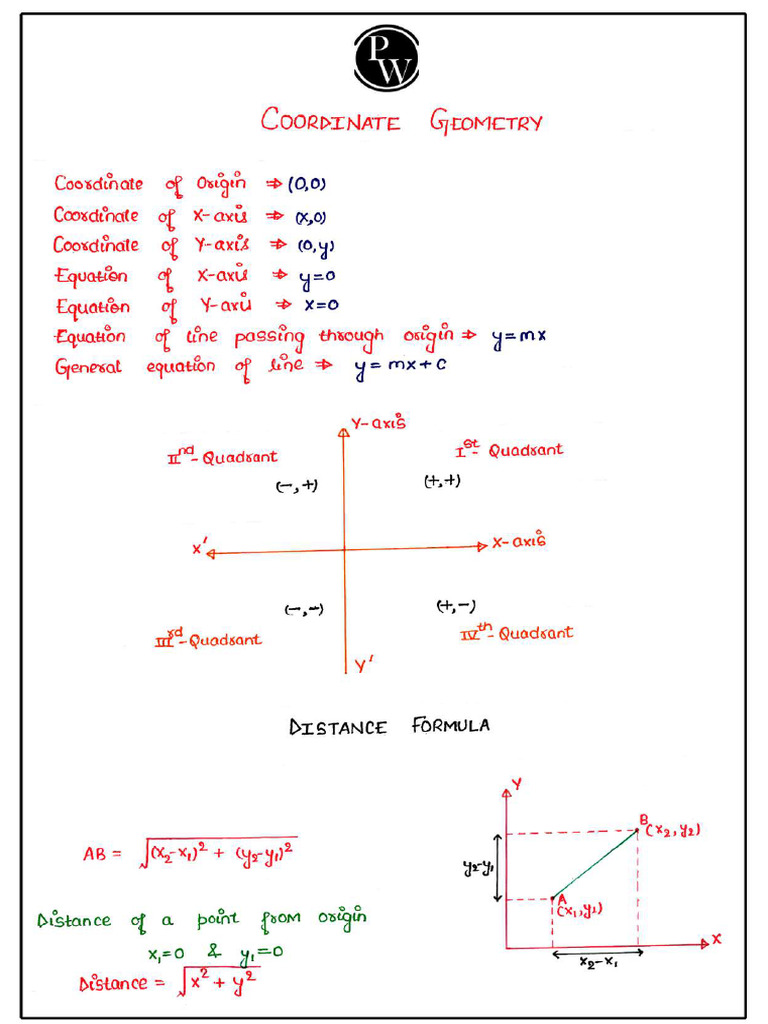 PW
COORDINATE GEOMETRY
Coordinate of Origin ⇒ (0,0)
Coordinate of X-axis ⇒ (x,0)
Coordinate of Y-axis ⇒ (0,y)
Equation of X-axis ⇒ y=0
Equation of Y-axis ⇒ x=0
Equation of line passing through origin ⇒ y=mx
General equation of line ⇒ y = mx+c
Y-axis
IInd-Quadrant
Ist-Quadrant
(-,+)
(+,+)
X'
X-axis
(-,-)
(+,-)
IIIrd-Quadrant
IVth-Quadrant
Y'
DISTANCE FORMULA
AB = √(x₂-x₁)² + (y₂-y₁)²
Distance of a point from origin
x₁=0 & y₁=0
Distance = √x² + y²
Y
B
(x₂,y₂)
y₂-y₁
A
(x₁,y₁)
X
x₂-x₁